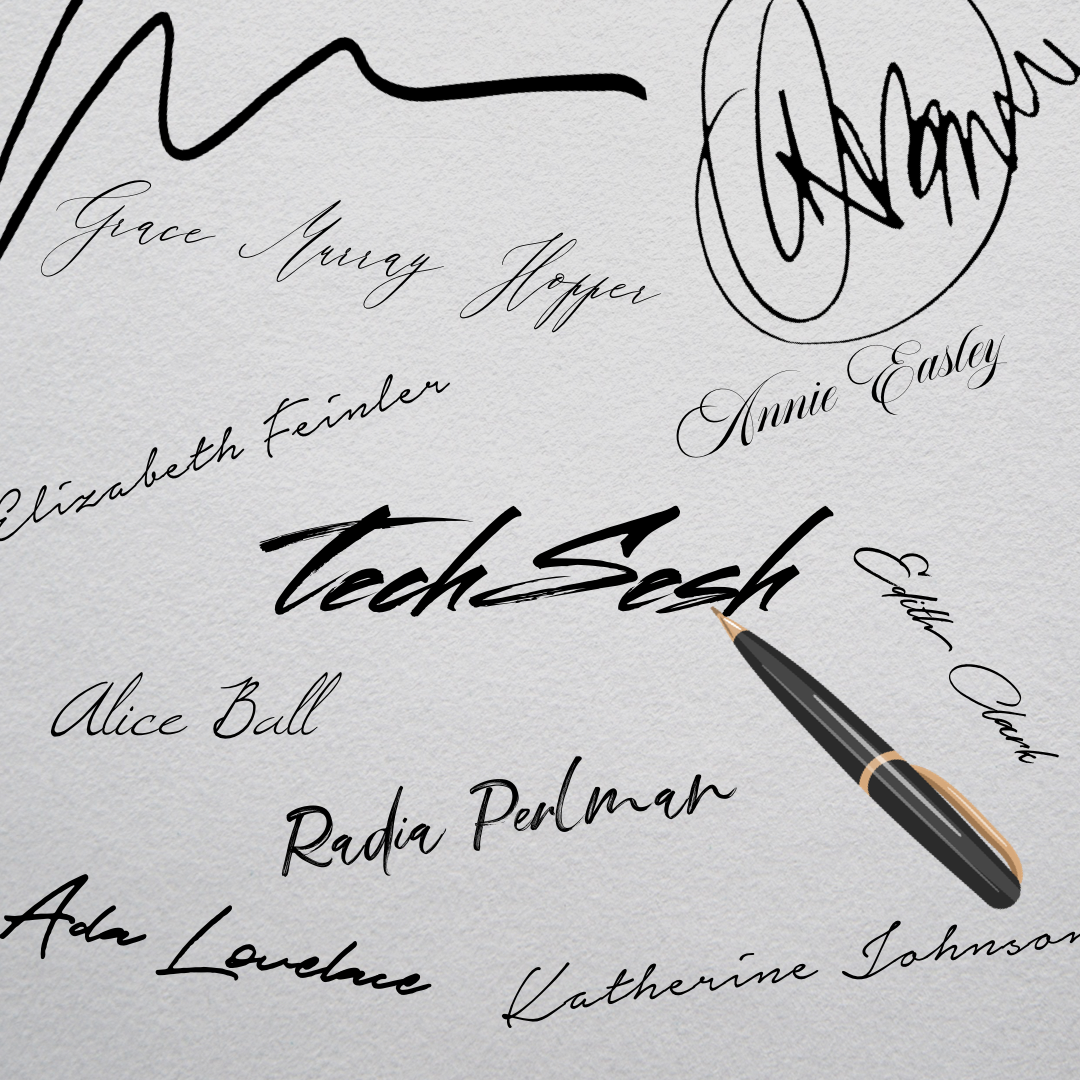 Grace Murray Hopper
Annie Easley
Elizabeth Feinler
TechSesh
Edith Clark
Alice Ball
Radia Perlman
Ada Lovelace
Katherine Johnson